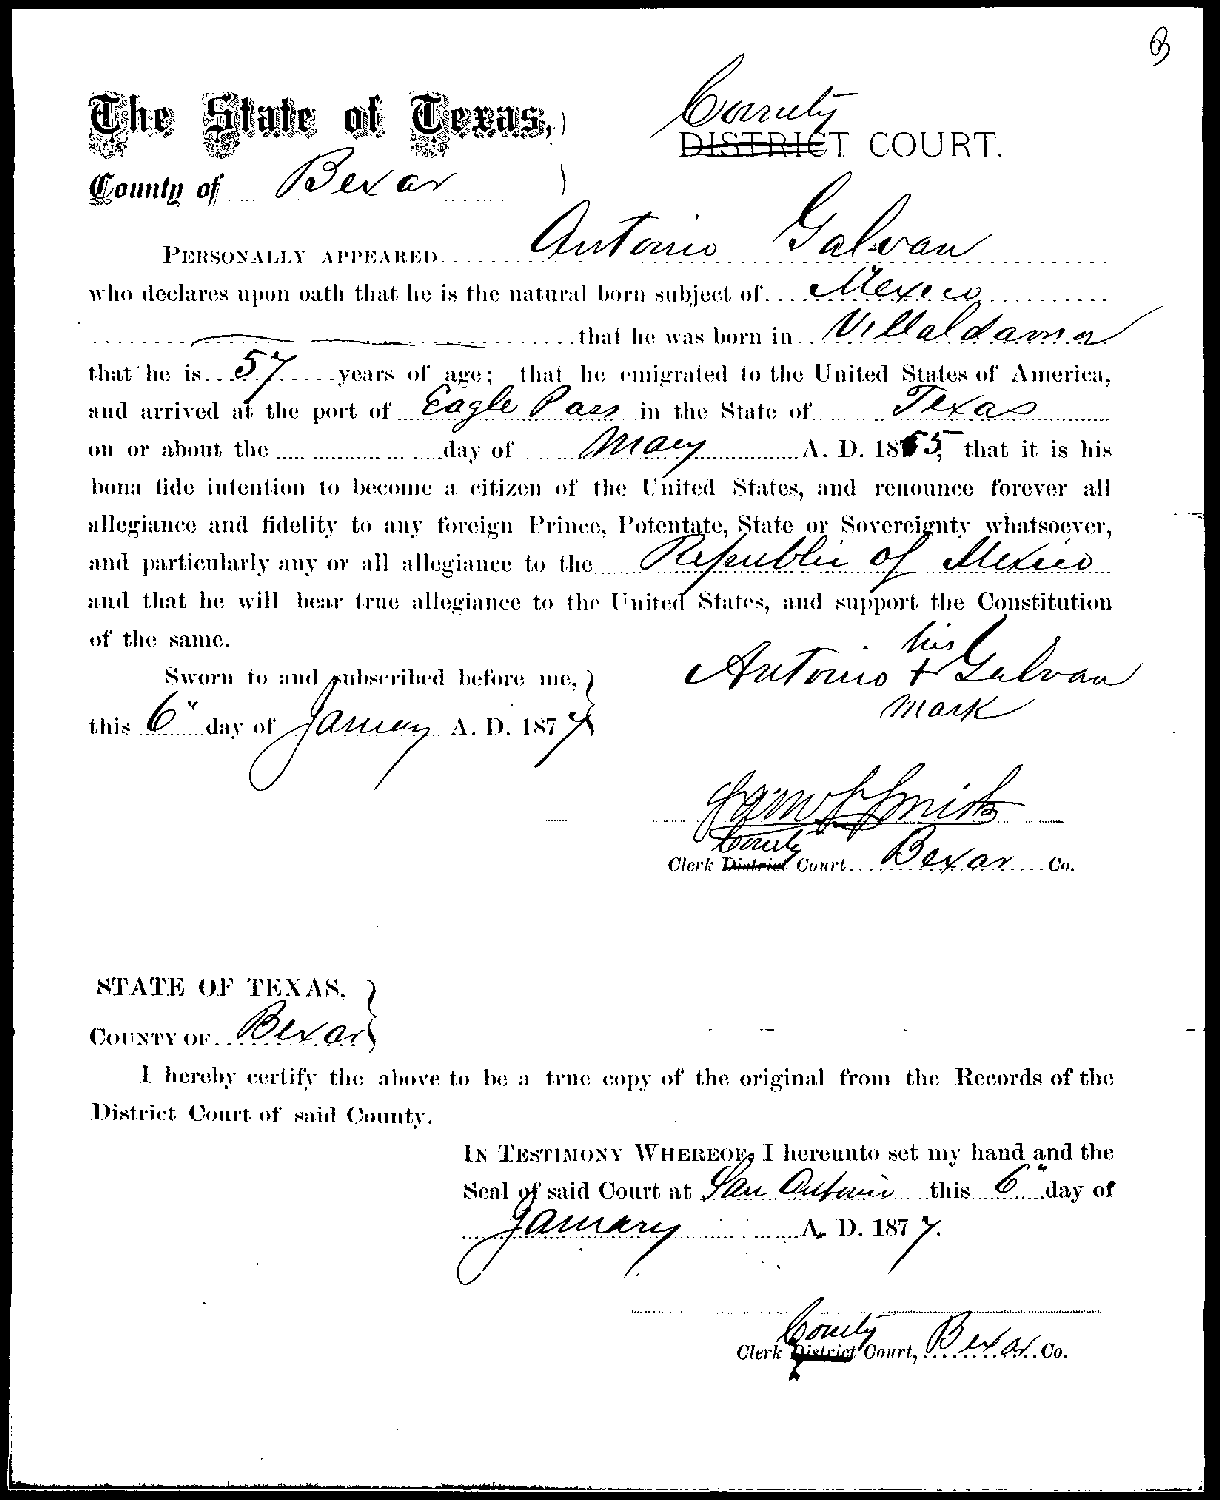 The State of Texas,
County
DISTRICT COURT.
County of Bexar
PERSONALLY APPEARED Antonio Galvan
who declares upon oath that he is the natural born subject of Mexico
that he was born in Villaldama
that he is 57 years of age; that he emigrated to the United States of America,
and arrived at the port of Eagle Pass in the State of Texas
on or about the day of May A. D. 1855, that it is his
bona fide intention to become a citizen of the United States, and renounce forever all
allegiance and fidelity to any foreign Prince, Potentate, State or Sovereignty whatsoever,
and particularly any or all allegiance to the Republic of Mexico
and that he will bear true allegiance to the United States, and support the Constitution
of the same.
his
Antonio + Galvan
mark
Sworn to and subscribed before me,
this 6" day of January A. D. 1877
Sam S Smith
County
Clerk District Court Bexar Co.
STATE OF TEXAS,
COUNTY OF Bexar
I hereby certify the above to be a true copy of the original from the Records of the
District Court of said County.
IN TESTIMONY WHEREOF, I hereunto set my hand and the
Seal of said Court at San Antonio this 6" day of
January A. D. 1877.
County
Clerk District Court, Bexar Co.